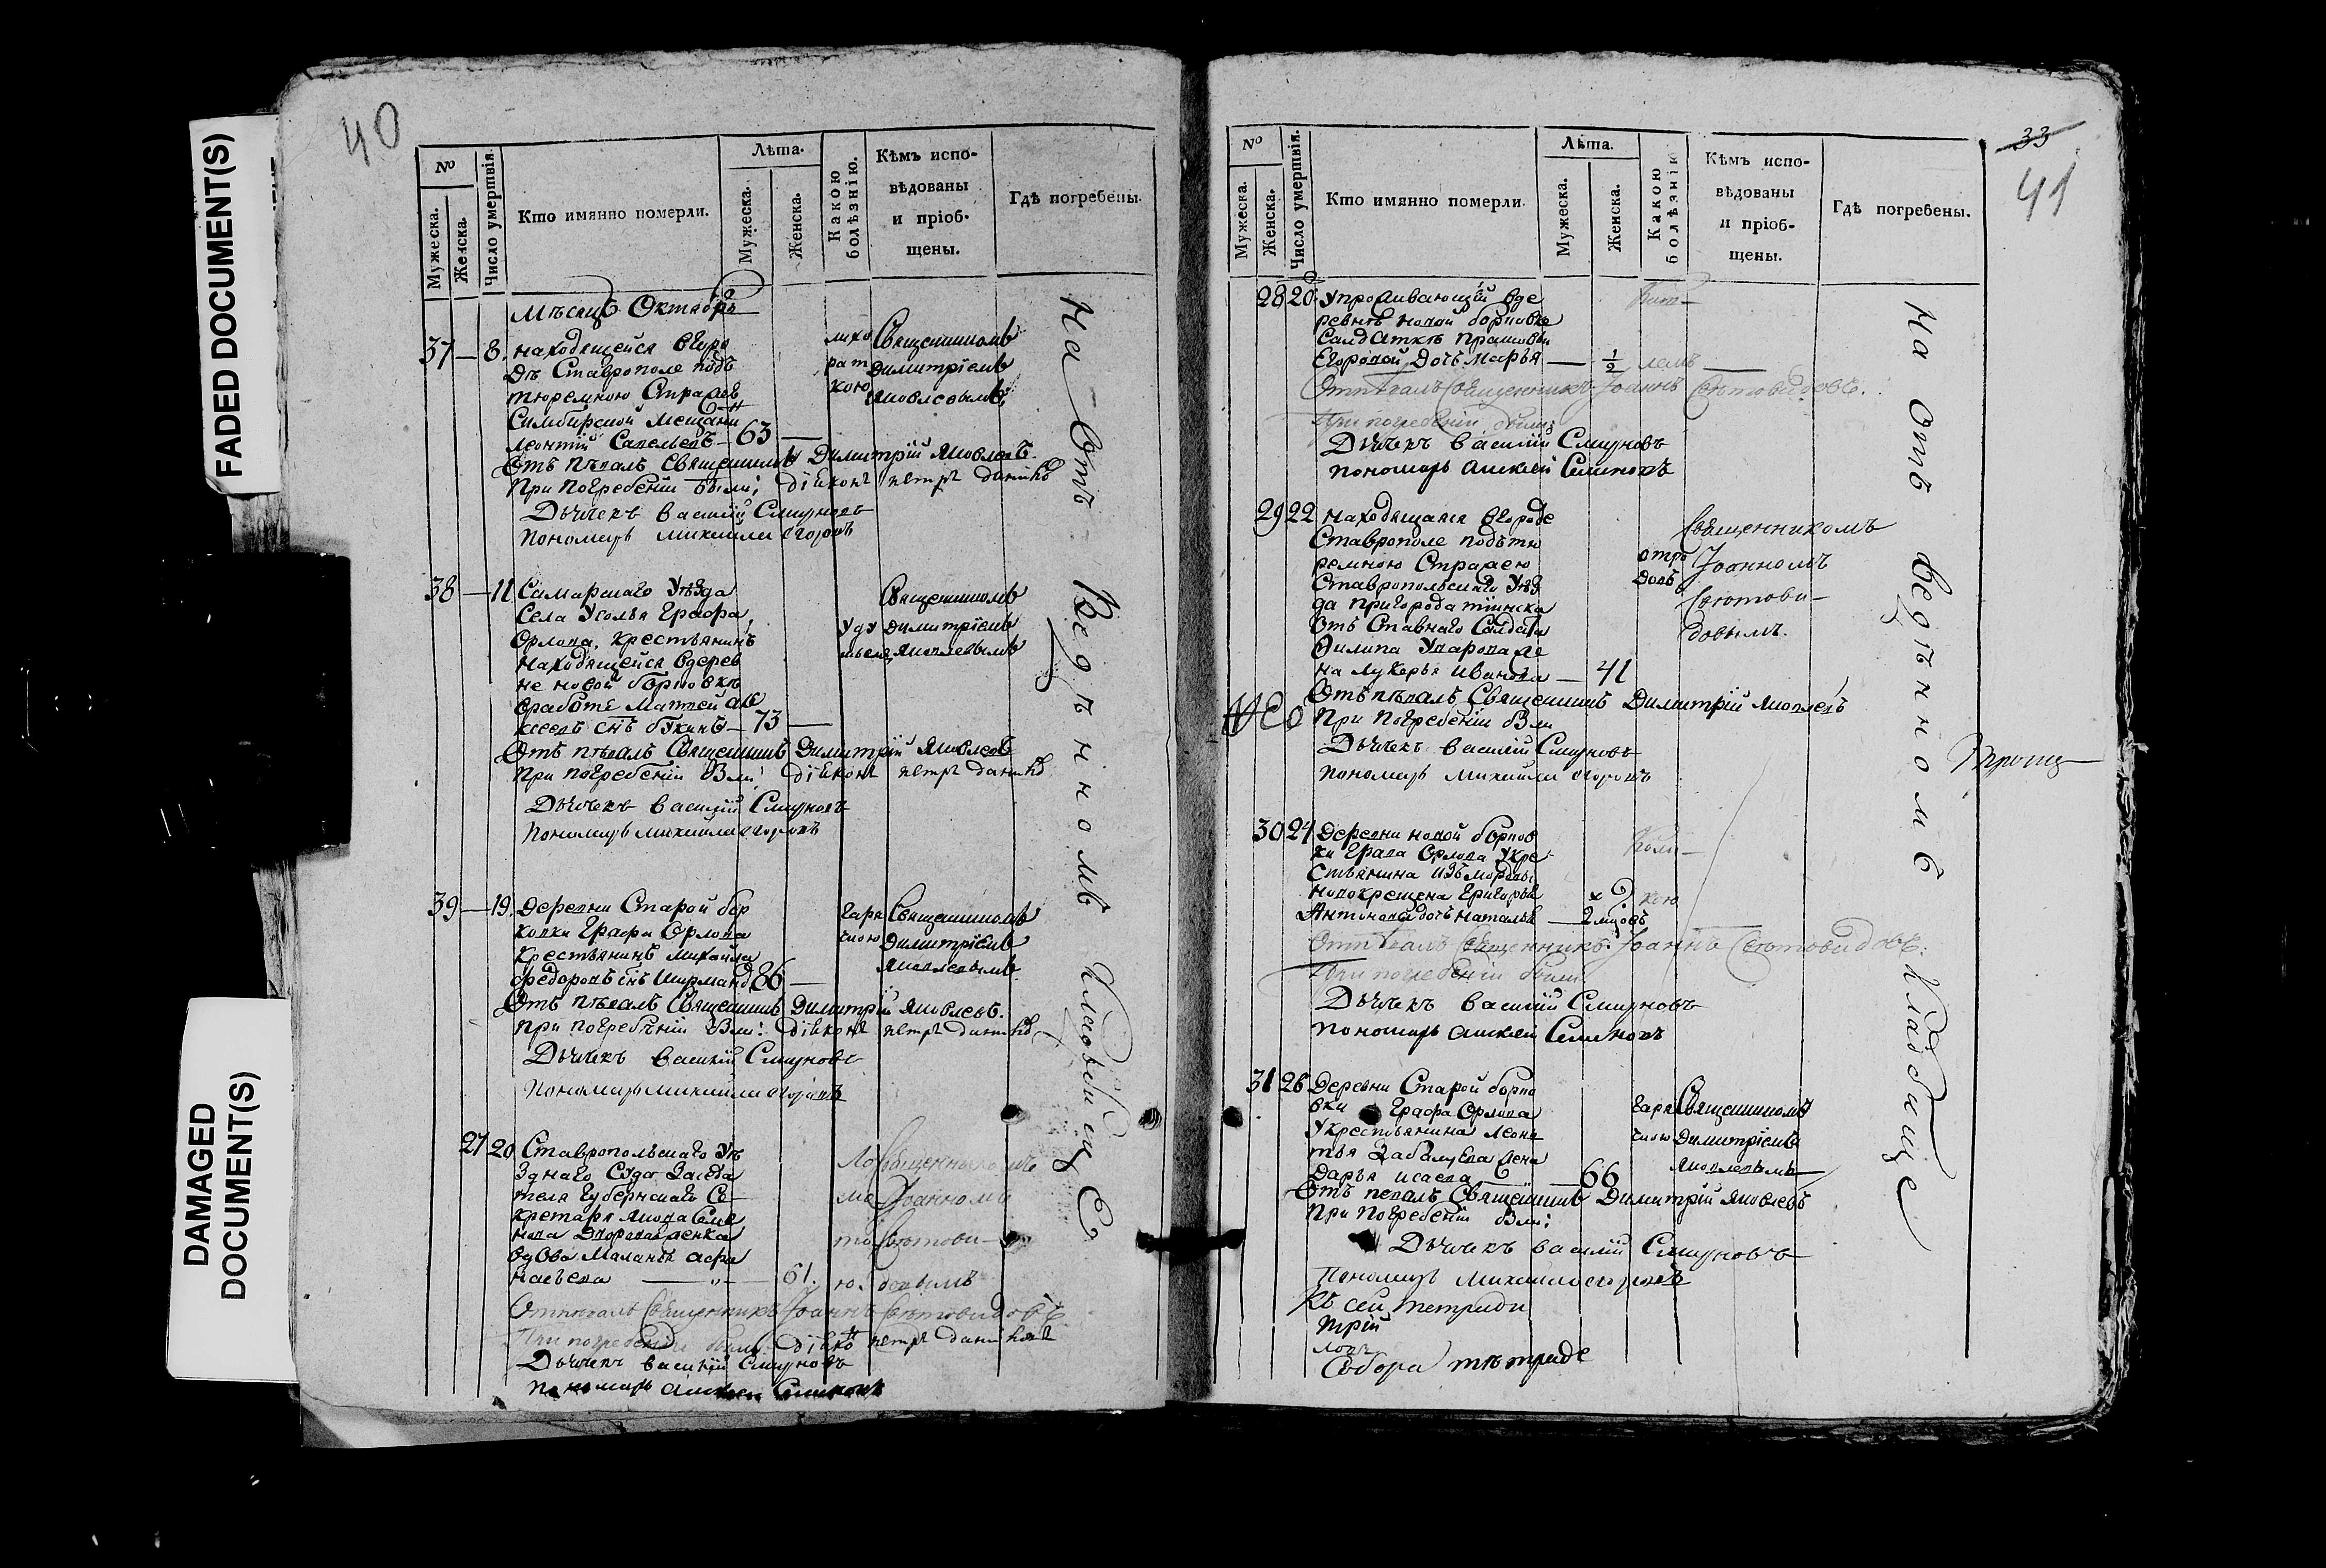 FADED DOCUMENT(S)
DAMAGED DOCUMENT(S)
40
№
Мужеска.
Женска.
Число умертвія.
Кто имянно померли.
Лѣта.
Мужеска.
Женска.
Какою болѣзнію.
Кѣмъ испо-
вѣдованы
и пріоб-
щены.
Гдѣ погребены.
Мѣсяцъ Октябрь
37 — 8. находящейся вгоро
дѣ Ставрополе подъ
тюремною Стражею
Симбирской мещани
леонтий Савельевъ — 63 —
лихо
рат
кою
Священникомъ
димитріемъ
яковлевымъ
Отъ пѣвалъ Священникъ Димитрій яковлевъ.
При погребеніи были; діаконъ петръ
Дьячекъ василий Смирновъ
Пономарь михаила егоровъ
38 — 11 Самарскаго Уѣзда
Села Усолья Графа,
Орлова, крестьянинъ
находящейся вдерев
не новой борковкѣ
вработе Матвей але
ксеевъ снъ букинъ — 73 —
уду
шьем
Священникомъ
димитріемъ
яковлевымъ
Отъ пѣвалъ Священникъ Димитрій Яковлевъ
При погребеніи Были: діаконъ петръ
Дьячекъ василий Смирновъ
Пономарь михаила егоровъ
39 — 19. деревни Старой бор
ковки Графа Орлова
крестьянинъ михайла
федоровъ снъ 86 —
гаря
чкою
Священникомъ
димитріемъ
яковлевымъ
Отъ пѣвалъ Священникъ Димитрій Яковлевъ.
при погребѣніи Были: діаконъ петръ
Дьячекъ василий Смирновъ
Пономарь михаила егоровъ
27 20 Ставропольскаго Уѣ
зднаго Суда Заседа
теля Губернскаго Се-
кретаря якова Семе
нова женка
вдова Маланья афа
насьева — „ — 61.
ло
мо
то
ю.
Священникомъ
Іоанномъ
Свѣтови-
довымъ
Отпѣвалъ Священникъ Іоаннъ Свѣтовидовъ.
При погребеніи были: діаконъ петръ
Дьячекъ василий Смирновъ
пономарь алексей Семеновъ
На Отъ Веденномъ кладбищѣ
33
41
№
Мужеска.
Женска.
Число умертвія.
Кто имянно померли.
Лѣта.
Мужеска.
Женска.
Какою болѣзнію
Кѣмъ испо-
вѣдованы
и пріоб-
щены.
Гдѣ погребены.
28 20 Упроживающій вде
ревнѣ новой борковке
Салдаткѣ
Егоровой дочь марья — ½ —
Отпѣвалъ Священникъ Іоаннъ Свѣтовидовъ.
При погребеніи были;
Дьячекъ василий Смирновъ
пономарь алексей Семеновъ
29 22 находящаяся вгороде
Ставрополе подътю
ремною Стражею
Ставропольскаго Уѣз
да пригорода тиинска
Отъ Ставнаго Салдата
Филипа Уварова же
на лукерья иванова — 41
Священникомъ
Іоанномъ
Свѣтови-
довымъ.
Отъ пѣвалъ Священникъ Димитрій яковлевъ
При погребеніи Были
Дьячекъ василий Смирновъ
пономарь михаила егоровъ
30 24 деревни новой борков
ки Графа Орлова Укре-
стьянина изъ мордвы
новокрещена Григорья
Антонова дочь наталья — 2 мцовъ
Отпѣвалъ Священникъ Іоаннъ Свѣтовидовъ.
При погребеніи были
Дьячекъ василий Смирновъ
пономарь алексей Семеновъ
31 26 деревни Старой борко
вки Графа Орлова
Укрестьянина леон
тья жена
дарья исаева — 66
гаря
чкою
Священникомъ
димитріемъ
яковлевымъ
Отъ певалъ Священникъ Димитрій яковлевъ
При погребеніи Были;
Дьячекъ василий Смирновъ
Пономарь михаила егоровъ
Къ сей тетради
трій
Собора
На Отъ веденномъ Кладбище
Троиц